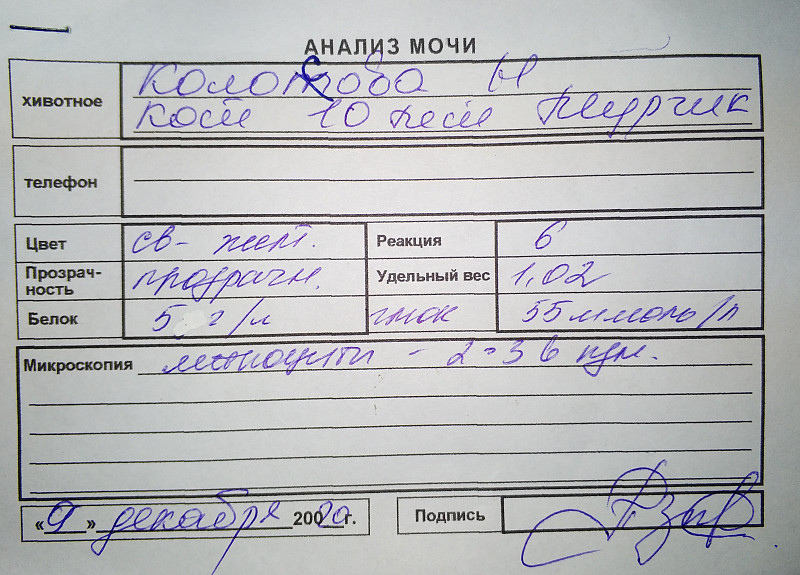 АНАЛИЗ МОЧИ
животное Колотова Н
Кот 10 лет Мурчик
телефон
Цвет св- желт. Реакция 6
Прозрачность прозрачн. Удельный вес 1,02
Белок 5 г/л глюк 55 ммоль/л
Микроскопия лейкоциты - 2-3 в п/зр.
«9» декабря 2020г. Подпись